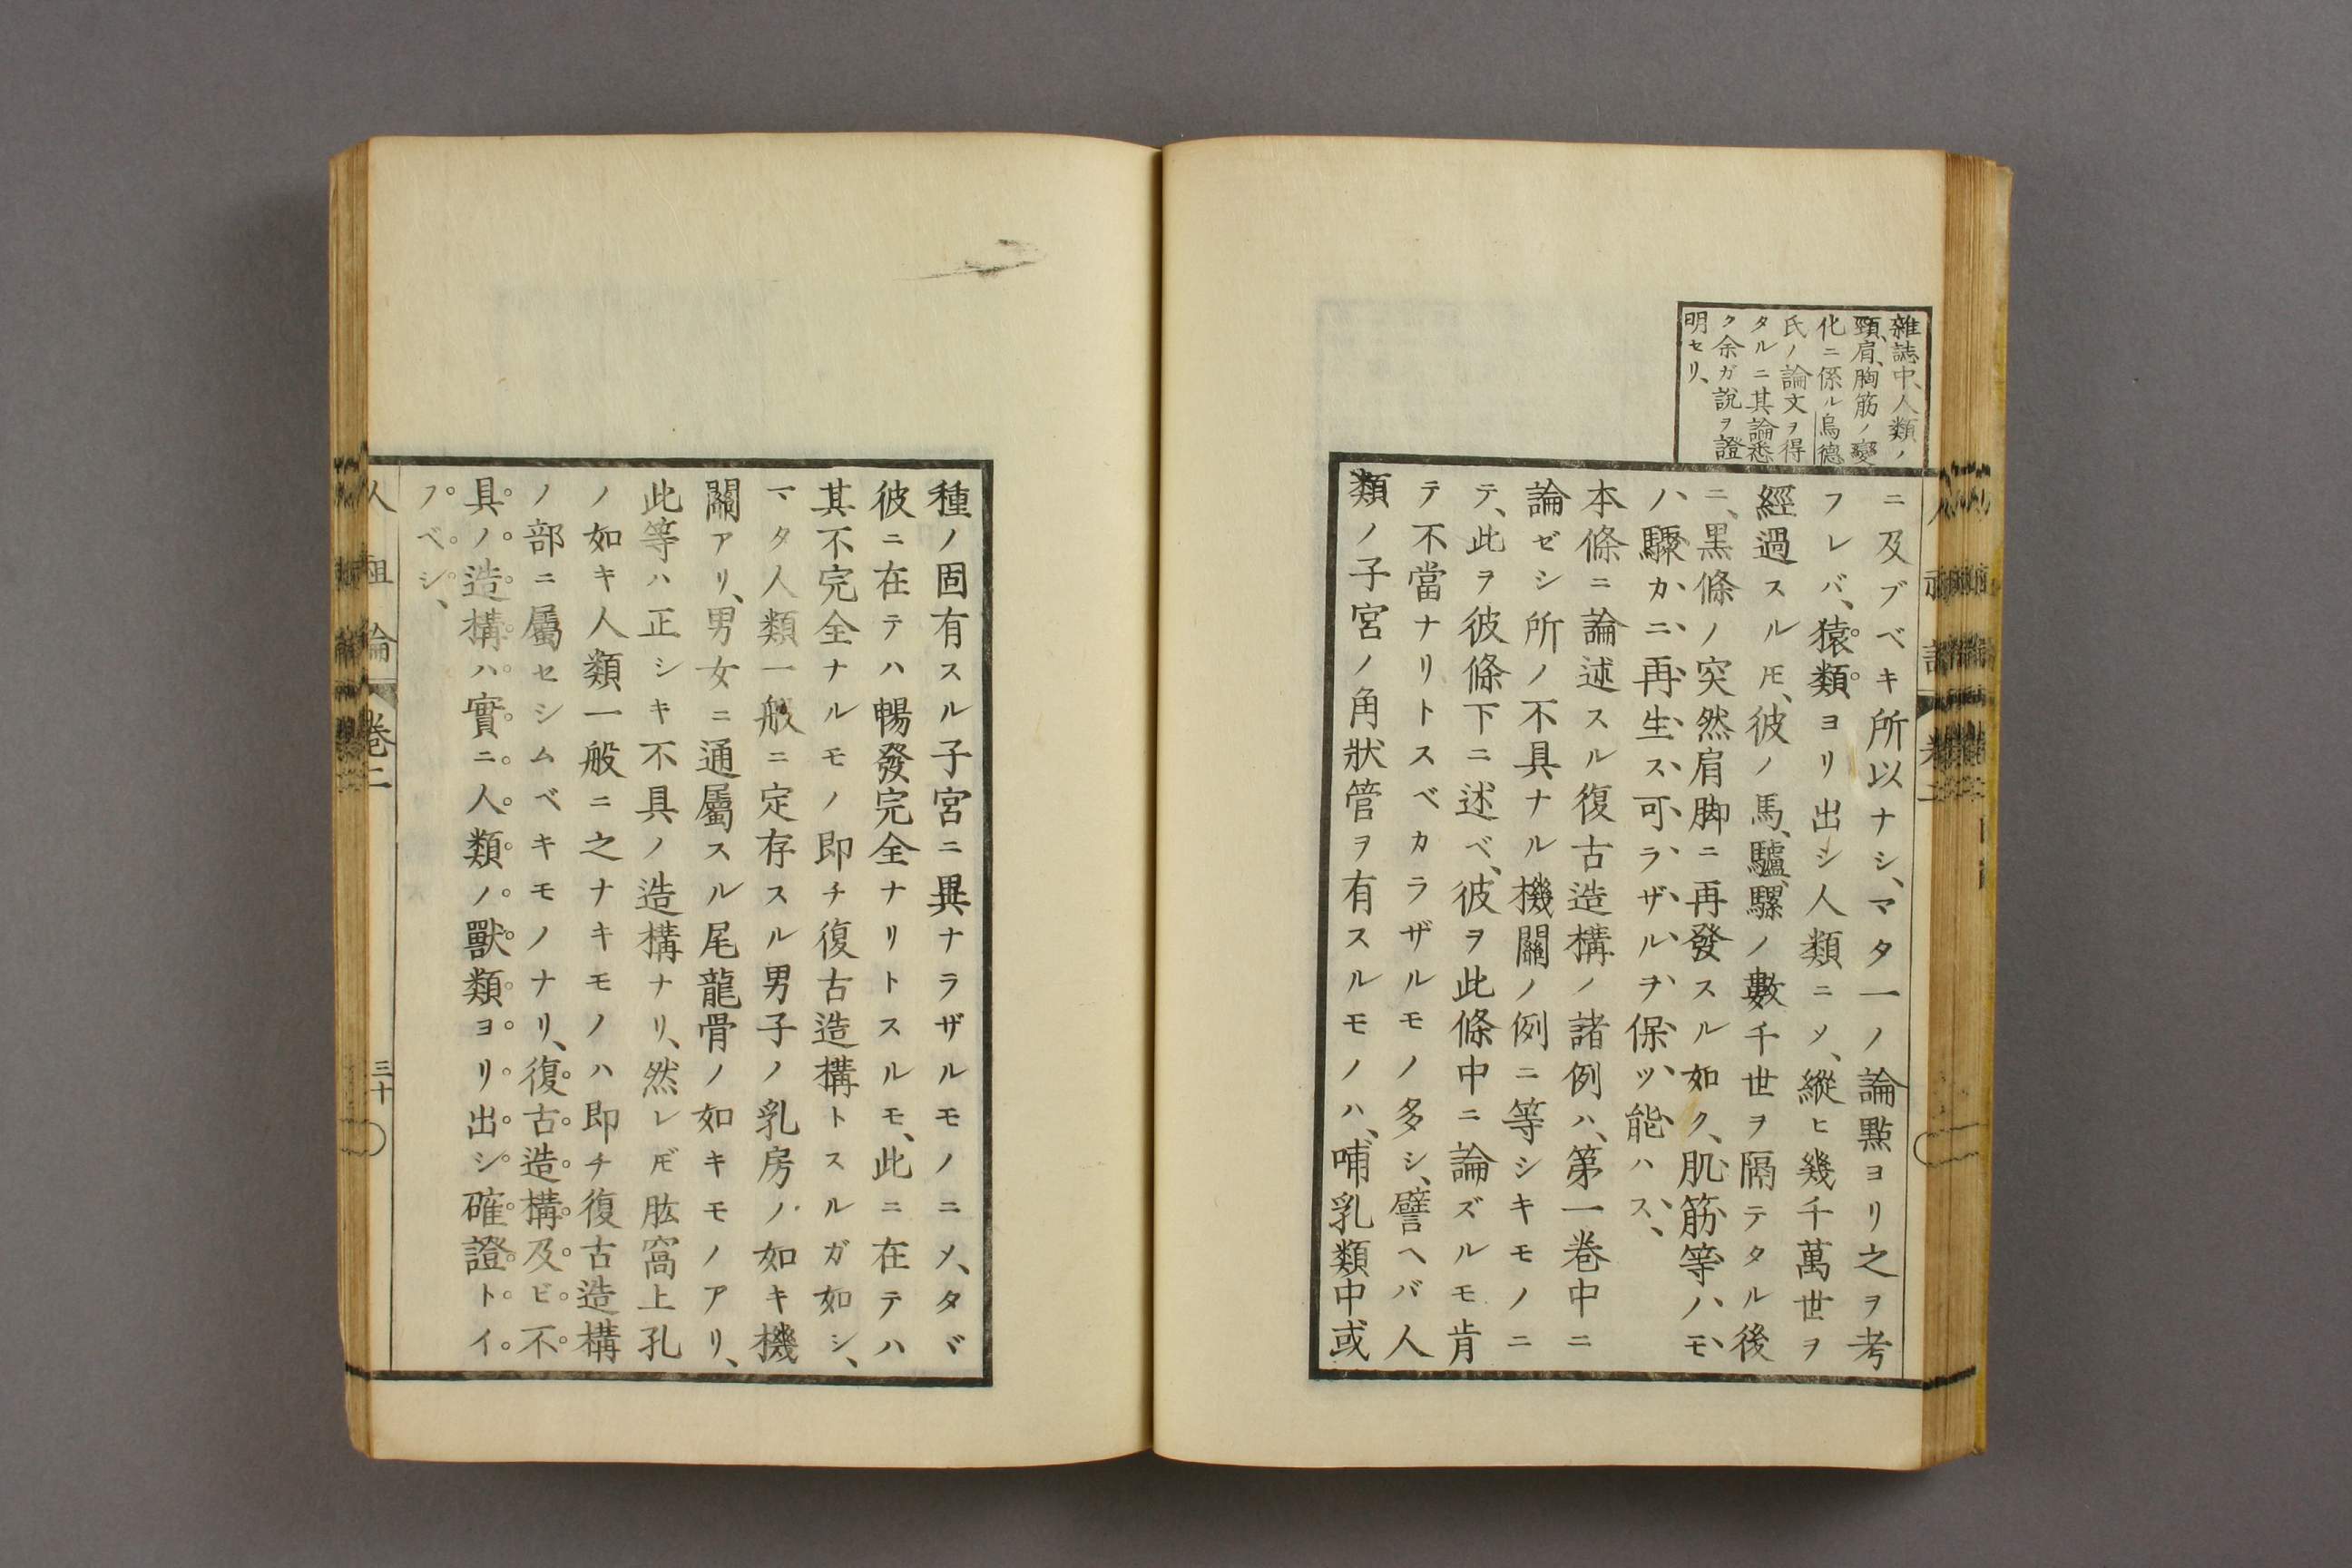 雜誌中、人類ノ
頸、肩、胸筋ノ變
化ニ係ル烏德
氏ノ論文ヲ得
タルニ其論悉
ク余ガ説ヲ證
明セリ、
ニ及ブベキ所以ナシ、マタ一ノ論點ヨリ之ヲ考
フレバ、猿類ヨリ出シ人類ニメ、縱ヒ幾千萬世ヲ
經過スルモ、彼ノ馬、驢、騾ノ數千世ヲ隔テタル後
ニ、黒條ノ突然肩脚ニ再發スル如ク、肌筋等ハモ
ハ驟カニ再生ス可ラザルヲ保ツ能ハス、
本條ニ論述スル復古造構ノ諸例ハ、第一巻中ニ
論ゼシ所ノ不具ナル機關ノ例ニ等シキモノニ
テ、此ヲ彼條下ニ述べ、彼ヲ此條中ニ論ズルモ肯
テ不當ナリトスベカラザルモノ多シ、譬ヘバ人
類ノ子宮ノ角狀管ヲ有スルモノハ、哺乳類中或
種ノ固有スル子宮ニ異ナラザルモノニメ、タヾ
彼ニ在テハ暢發完全ナリトスルモ、此ニ在テハ
其不完全ナルモノ即チ復古造構トスルガ如シ、
マタ人類一般ニ定存スル男子ノ乳房ノ如キ機
關アリ、男女ニ通屬スル尾龍骨ノ如キモノアリ、
此等ハ正シキ不具ノ造構ナリ、然レ𪜈肱窩上孔
ノ如キ人類一般ニ之ナキモノハ即チ復古造構
ノ部ニ屬セシムベキモノナリ、復古造構及ビ不
具ノ造構ハ實ニ人類ノ獸類ヨリ出シ確證トイ
フベシ、
人祖論
巻二
三十